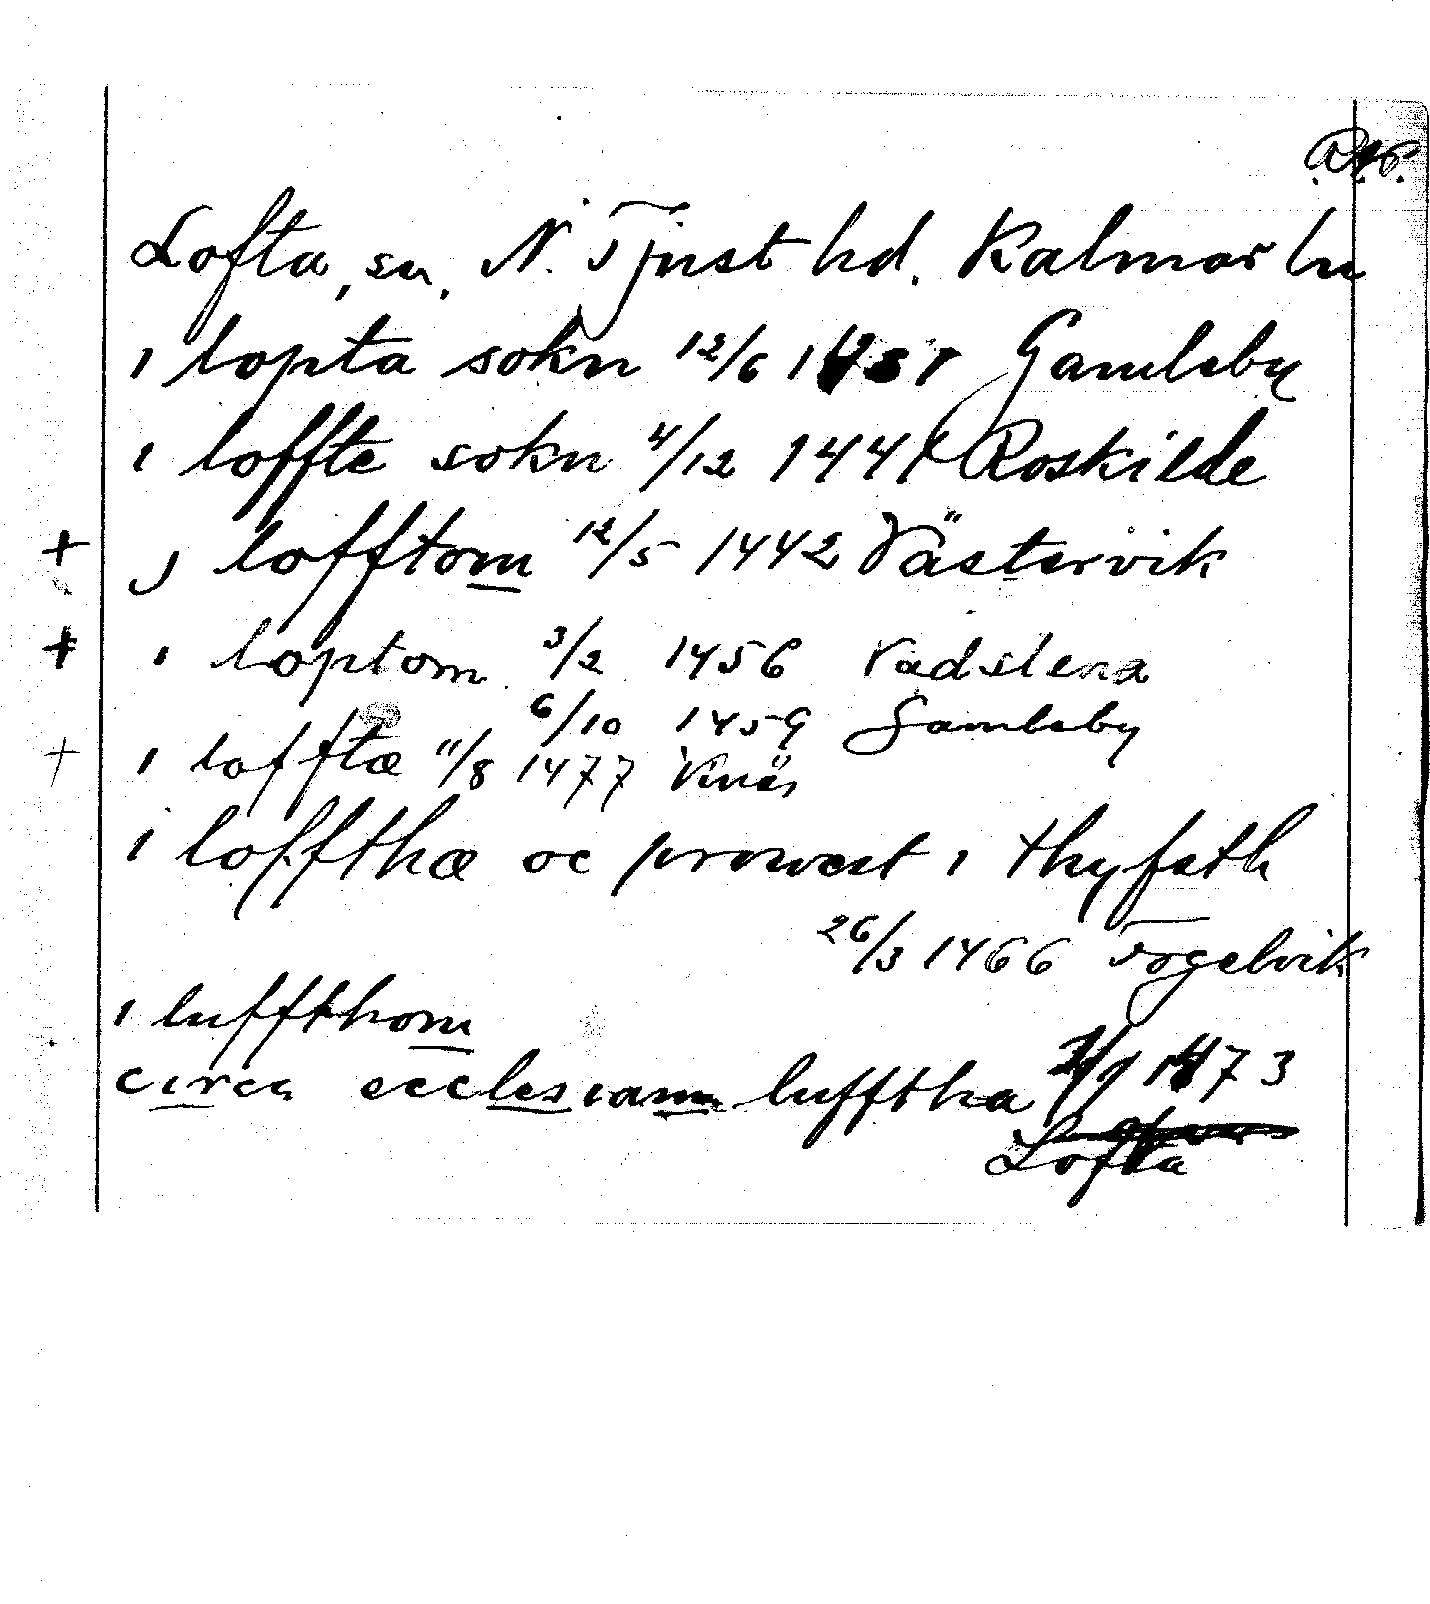 R.A.P.
Lofta, sn. N. Tjust hd. Kalmar ln
i lopta sokn 12/6 Gamleby
i loffte sokn 4/12 1441 Roskilde
+ j lofftom 12/5 1442 Västervik
+ i loptom 3/2 1456 Vadstena
6/10 1459 Gamleby
+ i lofftæ 11/8 1477 Vinäs
i loffthæ oc prowest i thyfsth
26/3 1466 Fogelvik
i luffthom
circa ecclesiam lufftha 1473
Lofta